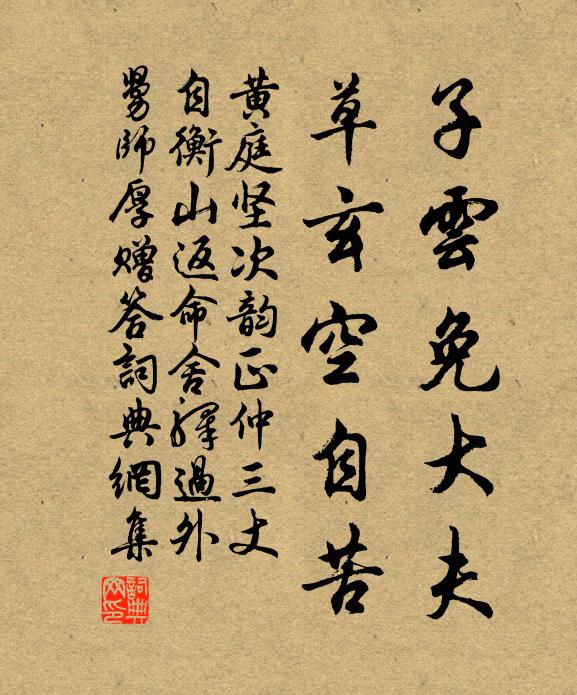 子雲免大夫
草玄空自苦
黄庭坚次韵正仲三丈
自衡山返命舍驛過外
舅師厚贈答詞典網集
詞典
网印